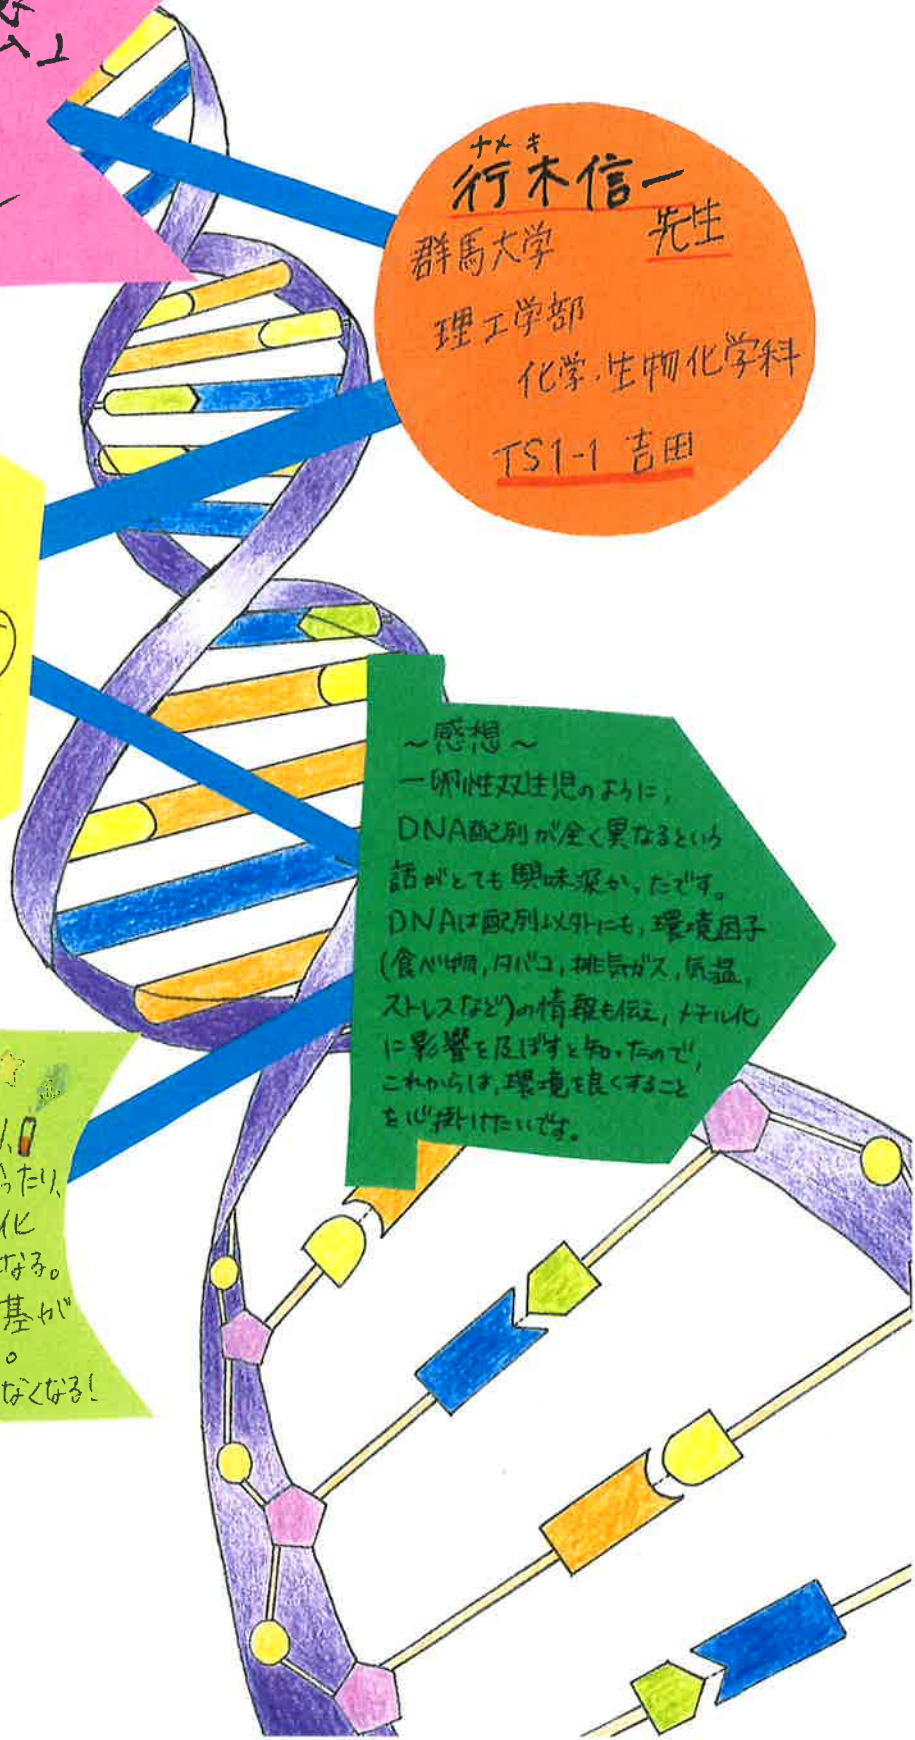 ナメキ
行木信一
先生
群馬大学
理工学部
化学・生物化学科
TS1-1 吉田
~感想~
一卵性双生児のように、
DNA配列が全く異なるという
話がとても興味深かったです。
DNAは配列以外にも、環境因子
(食べ物,タバコ,排気ガス,気温,
ストレスなど)の情報も伝え,メチル化
に影響を及ぼすと知ったので,
これからは、環境を良くすること
を心掛けたいです。
ったり、
化
なる。
基が
。
なくなる!